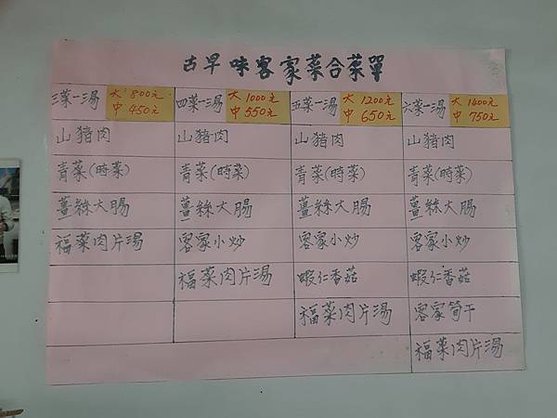 古早味客家菜合菜單
三菜一湯 大 800元 中 450元
四菜一湯 大 1000元 中 550元
五菜一湯 大 1200元 中 650元
六菜一湯 大 1400元 中 750元
山豬肉 山豬肉 山豬肉 山豬肉
青菜(時菜) 青菜(時菜) 青菜(時菜) 青菜(時菜)
薑絲大腸 薑絲大腸 薑絲大腸 薑絲大腸
福菜肉片湯 客家小炒 客家小炒 客家小炒
福菜肉片湯 蝦仁香菇 蝦仁香菇
福菜肉片湯 客家筍干
福菜肉片湯